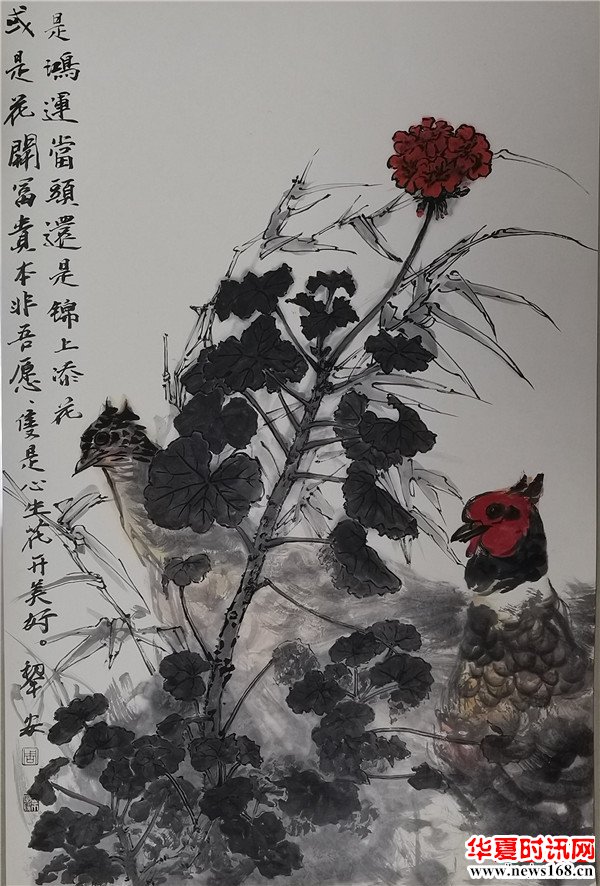 是鴻運當頭還是锦上添花
或是花開冨貴本非吾愿、隻是心生花开美好。
安
华夏时讯网
www.news168.cn